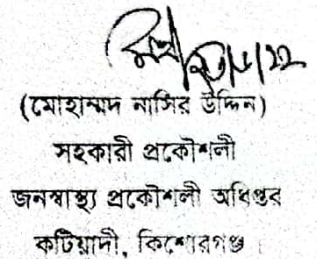 (মোহাম্মদ নাসির উদ্দিন)
সহকারী প্রকৌশলী
জনস্বাস্থ্য প্রকৌশলী অধিপ্তর
কটিয়াদী, কিশোরগঞ্জ।